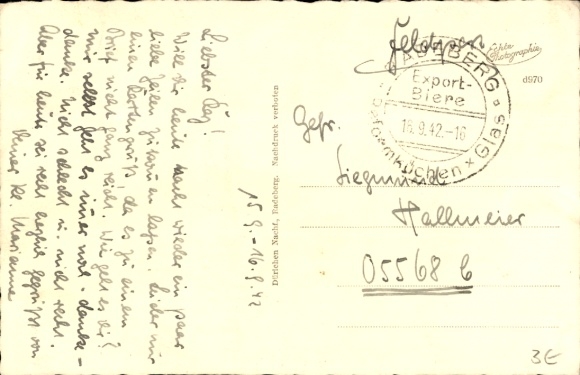 Liebster Sieg!
Will Dir heute rasch wieder ein paar
liebe Zeilen zukommen lassen. Leider nur
einen Kartengruß, da es zu einem
Brief nicht ganz reicht. Wie geht es Dir?
mir selbst geht es immer noch - danke -
danke. Nicht schlecht u. nicht recht.
Aber für heute sei recht herzlich gegrüßt von
Deiner Marianne
15.9.-16.9.42
Dürichen Nachf., Radeberg. Nachdruck verboten
Feldpost
Echte Photographie
d970
RADEBERG
Export-
Biere
16.9.42.-16
Glas
Gefr.
Siegmund
Hallmeier
05568 C
3E